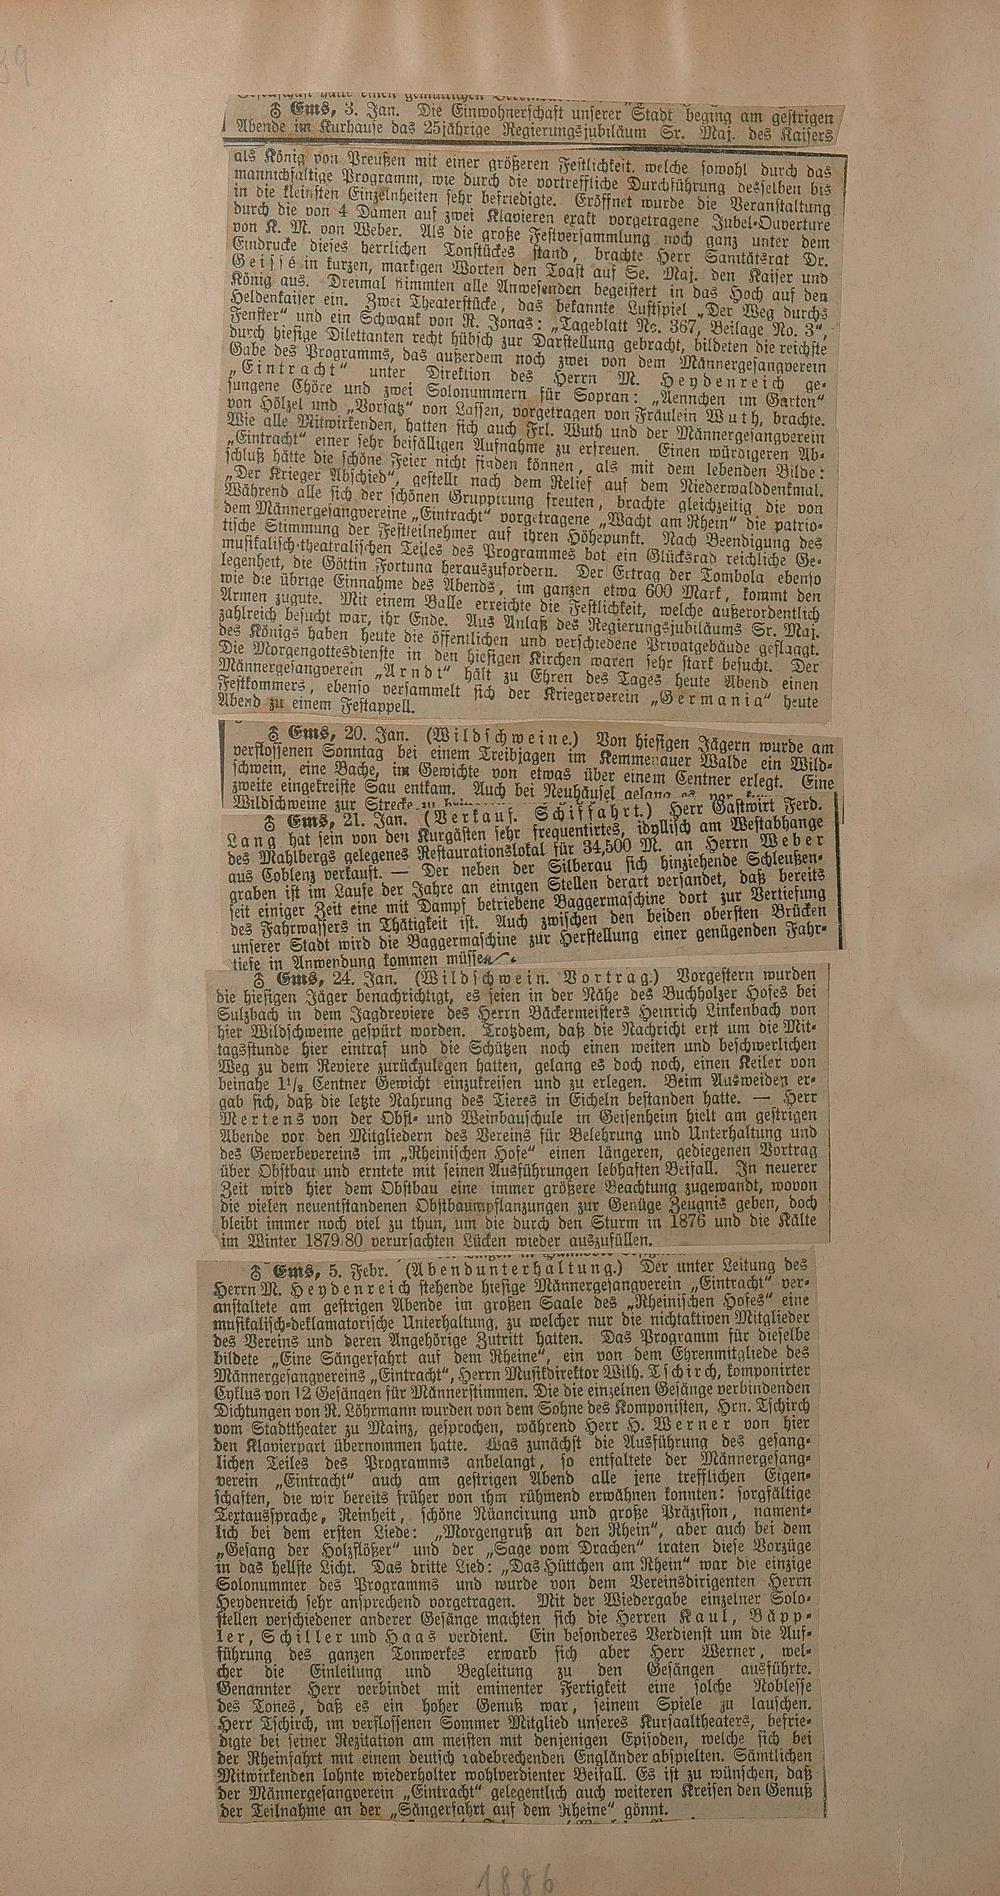 39
♁ Ems, 3. Jan. Die Einwohnerschaft unserer Stadt beging am gestrigen
Abende im Kurhause das 25jährige Regierungsjubiläum Sr. Maj. des Kaisers
als König von Preußen mit einer größeren Festlichkeit, welche sowohl durch das
mannichfaltige Programm, wie durch die vortreffliche Durchführung desselben bis
in die kleinsten Einzelnheiten sehr befriedigte. Eröffnet wurde die Veranstaltung
durch die von 4 Damen auf zwei Klavieren exakt vorgetragene Jubel-Ouverture
von K. M. von Weber. Als die große Festversammlung noch ganz unter dem
Eindrucke dieses herrlichen Tonstückes stand, brachte Herr Sanitätsrat Dr.
Geissé in kurzen, markigen Worten den Toast auf Se. Maj. den Kaiser und
König aus. Dreimal stimmten alle Anwesenden begeistert in das Hoch auf den
Heldenkaiser ein. Zwei Theaterstücke, das bekannte Lustspiel „Der Weg durchs
Fenster“ und ein Schwank von R. Jonas: „Tageblatt No. 367, Beilage No. 3“,
durch hiesige Dilettanten recht hübsch zur Darstellung gebracht, bildeten die reichste
Gabe des Programms, das außerdem noch zwei von dem Männergesangverein
„Eintracht“ unter Direktion des Herrn M. Heydenreich ge-
sungene Chöre und zwei Solonummern für Sopran: „Aennchen im Garten“
von Hölzel und „Vorsatz“ von Lassen, vorgetragen von Fräulein Wuth, brachte.
Wie alle Mitwirkenden, hatten sich auch Frl. Wuth und der Männergesangverein
„Eintracht“ einer sehr beifälligen Aufnahme zu erfreuen. Einen würdigeren Ab-
schluß hätte die schöne Feier nicht finden können, als mit dem lebenden Bilde:
„Der Krieger Abschied“, gestellt nach dem Relief auf dem Niederwalddenkmal.
Während alle sich der schönen Gruppirung freuten, brachte gleichzeitig die von
dem Männergesangvereine „Eintracht“ vorgetragene „Wacht am Rhein“ die patrio-
tische Stimmung der Festteilnehmer auf ihren Höhepunkt. Nach Beendigung des
musikalisch-theatralischen Teiles des Programmes bot ein Glücksrad reichliche Ge-
legenheit, die Göttin Fortuna herauszufordern. Der Ertrag der Tombola ebenso
wie die übrige Einnahme des Abends, im ganzen etwa 600 Mark, kommt den
Armen zugute. Mit einem Balle erreichte die Festlichkeit, welche außerordentlich
zahlreich besucht war, ihr Ende. Aus Anlaß des Regierungsjubiläums Sr. Maj.
des Königs haben heute die öffentlichen und verschiedene Privatgebäude geflaggt.
Die Morgengottesdienste in den hiesigen Kirchen waren sehr stark besucht. Der
Männergesangverein „Arndt“ hält zu Ehren des Tages heute Abend einen
Festkommers, ebenso versammelt sich der Kriegerverein „Germania“ heute
Abend zu einem Festappell.
♁ Ems, 20. Jan. (Wildschweine.) Von hiesigen Jägern wurde am
verflossenen Sonntag bei einem Treibjagen im Kemmenauer Walde ein Wild-
schwein, eine Bache, im Gewichte von etwas über einem Centner erlegt. Eine
zweite eingekreiste Sau entkam. Auch bei Neuhäusel gelang es
Wildschweine zur Strecke zu
♁ Ems, 21. Jan. (Verkauf. Schiffahrt.) Herr Gastwirt Ferd.
Lang hat sein von den Kurgästen sehr frequentirtes, idyllisch am Westabhange
des Mahlbergs gelegenes Restaurationslokal für 34,500 M. an Herrn Weber
aus Coblenz verkauft. — Der neben der Silberau sich hinziehende Schleußen-
graben ist im Laufe der Jahre an einigen Stellen derart versandet, daß bereits
seit einiger Zeit eine mit Dampf betriebene Baggermaschine dort zur Vertiefung
des Fahrwassers in Thätigkeit ist. Auch zwischen den beiden obersten Brücken
unserer Stadt wird die Baggermaschine zur Herstellung einer genügenden Fahr-
tiefe in Anwendung kommen müssen.
♁ Ems, 24. Jan. (Wildschwein. Vortrag.) Vorgestern wurden
die hiesigen Jäger benachrichtigt, es seien in der Nähe des Buchholzer Hofes bei
Sulzbach in dem Jagdreviere des Herrn Bäckermeisters Heinrich Linkenbach von
hier Wildschweine gespürt worden. Trotzdem, daß die Nachricht erst um die Mit-
tagsstunde hier eintraf und die Schützen noch einen weiten und beschwerlichen
Weg zu dem Reviere zurückzulegen hatten, gelang es doch noch, einen Keiler von
beinahe 1½ Centner Gewicht einzukreisen und zu erlegen. Beim Ausweiden er-
gab sich, daß die letzte Nahrung des Tieres in Eicheln bestanden hatte. — Herr
Mertens von der Obst- und Weinbauschule in Geisenheim hielt am gestrigen
Abende vor den Mitgliedern des Vereins für Belehrung und Unterhaltung und
des Gewerbevereins im „Rheinischen Hofe“ einen längeren, gediegenen Vortrag
über Obstbau und erntete mit seinen Ausführungen lebhaften Beifall. In neuerer
Zeit wird hier dem Obstbau eine immer größere Beachtung zugewandt, wovon
die vielen neuentstandenen Obstbaumpflanzungen zur Genüge Zeugnis geben, doch
bleibt immer noch viel zu thun, um die durch den Sturm in 1876 und die Kälte
im Winter 1879/80 verursachten Lücken wieder auszufüllen.
♁ Ems, 5. Febr. (Abendunterhaltung.) Der unter Leitung des
Herrn M. Heydenreich stehende hiesige Männergesangverein „Eintracht“ ver-
anstaltete am gestrigen Abende im großen Saale des „Rheinischen Hofes“ eine
musikalisch-deklamatorische Unterhaltung, zu welcher nur die nichtaktiven Mitglieder
des Vereins und deren Angehörige Zutritt hatten. Das Programm für dieselbe
bildete „Eine Sängerfahrt auf dem Rheine“, ein von dem Ehrenmitgliede des
Männergesangvereins „Eintracht“, Herrn Musikdirektor Wilh. Tschirch, komponirter
Cyklus von 12 Gesängen für Männerstimmen. Die die einzelnen Gesänge verbindenden
Dichtungen von R. Löhrmann wurden von dem Sohne des Komponisten, Hrn. Tschirch
vom Stadttheater zu Mainz, gesprochen, während Herr H. Werner von hier
den Klavierpart übernommen hatte. Was zunächst die Ausführung des gesang-
lichen Teiles des Programms anbelangt, so entfaltete der Männergesang-
verein „Eintracht“ auch am gestrigen Abend alle jene trefflichen Eigen-
schaften, die wir bereits früher von ihm rühmend erwähnen konnten: sorgfältige
Textaussprache, Reinheit, schöne Nüancirung und große Präzision, nament-
lich bei dem ersten Liede: „Morgengruß an den Rhein“, aber auch bei dem
„Gesang der Holzflößer“ und der „Sage vom Drachen“ traten diese Vorzüge
in das hellste Licht. Das dritte Lied: „Das Hüttchen am Rhein“ war die einzige
Solonummer des Programms und wurde von dem Vereinsdirigenten Herrn
Heydenreich sehr ansprechend vorgetragen. Mit der Wiedergabe einzelner Solo-
stellen verschiedener anderer Gesänge machten sich die Herren Kaul, Bäpp-
ler, Schiller und Haas verdient. Ein besonderes Verdienst um die Auf-
führung des ganzen Tonwerkes erwarb sich aber Herr Werner, wel-
cher die Einleitung und Begleitung zu den Gesängen ausführte.
Genannter Herr verbindet mit eminenter Fertigkeit eine solche Noblesse
des Tones, daß es ein hoher Genuß war, seinem Spiele zu lauschen.
Herr Tschirch, im verflossenen Sommer Mitglied unseres Kursaaltheaters, befrie-
digte bei seiner Rezitation am meisten mit denjenigen Episoden, welche sich bei
der Rheinfahrt mit einem deutsch radebrechenden Engländer abspielten. Sämtlichen
Mitwirkenden lohnte wiederholter wohlverdienter Beifall. Es ist zu wünschen, daß
der Männergesangverein „Eintracht“ gelegentlich auch weiteren Kreisen den Genuß
der Teilnahme an der „Sängerfahrt auf dem Rheine“ gönnt.
1886